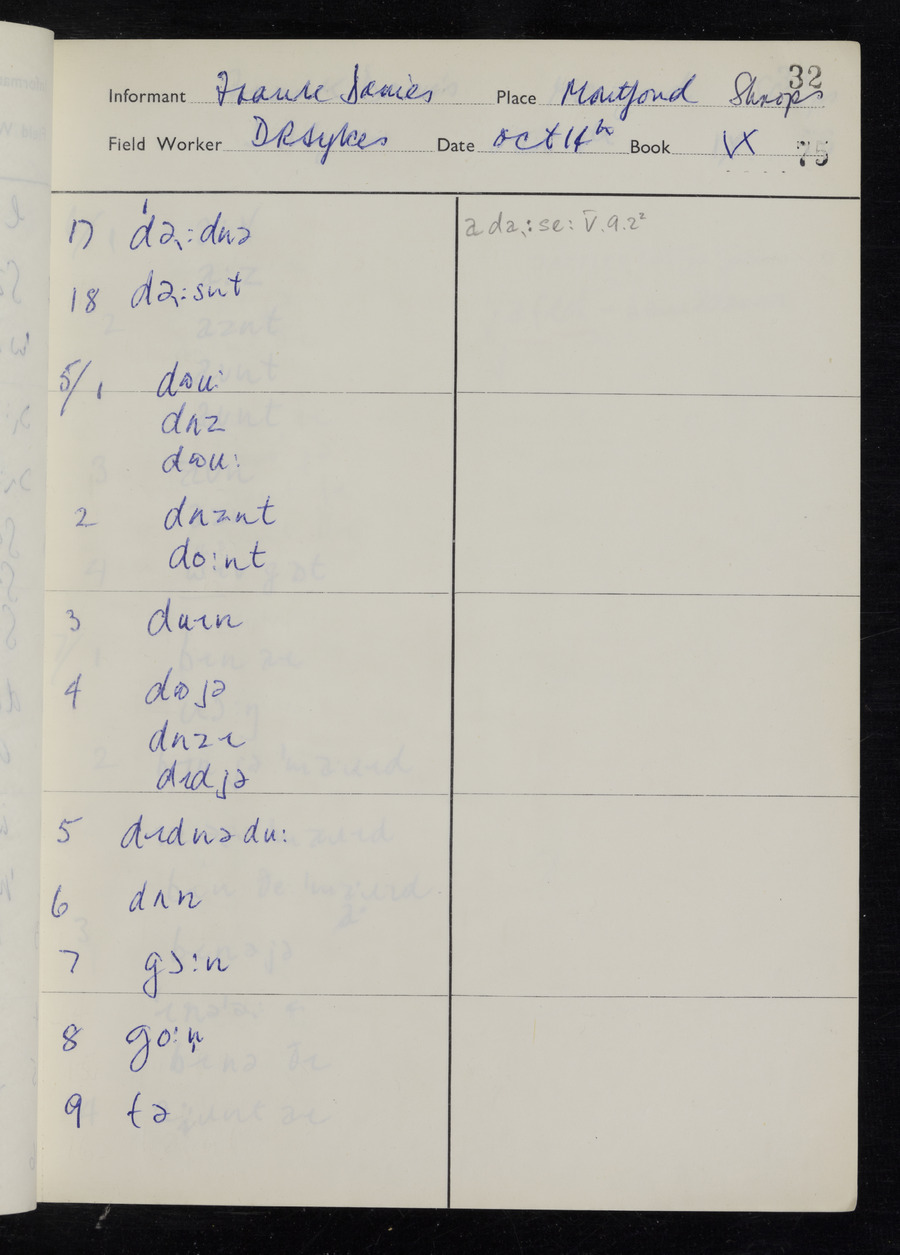 32
Informant Frank Davies Place Montford Shrops
Field Worker DRSykes Date Oct 14th Book IX
75
17 ˈdəɻ:dnə ə dəɻ:se: V.9.2²
18 dəɻ:snt
5/1 dəu:
dʌz
dəu:
2 dʌznt
do:nt
3 duɪn
4 dəjə
dʌzɪ
dɪdjə
5 dɪdnədu:
6 dʌn
7 gɔ:n
8 go:n̩
9 tə